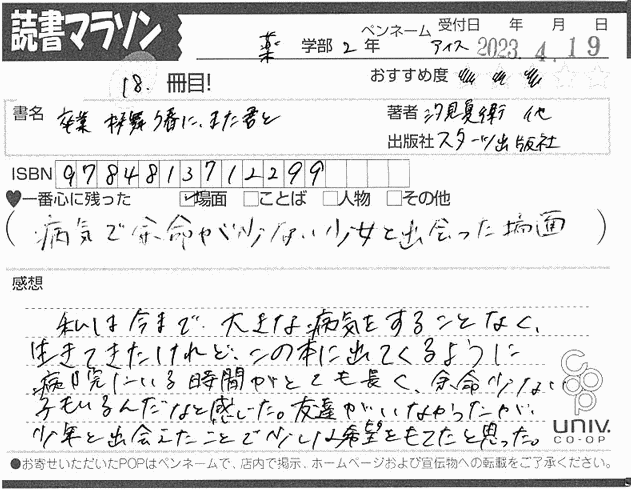 読書マラソン
薬 学部 2 年
ペンネーム アイス
受付日 年 月 日
2023. 4. 19
18. 冊目!
おすすめ度 ★★★☆☆
書名 卒業 桜舞う春に、また君と
著者 汐見夏衛 他
出版社 スターツ出版社
ISBN 9784813712299
♥一番心に残った ☑場面 □ことば □人物 □その他
(病気で余命が少ない少女と出会った場面)
感想
私は今まで、大きな病気をすることなく、
生きてきたけれど、この本に出てくるように
病院にいる時間がとても長く、余命少ない
子もいるんだなと感じた。友達がいなかったが、
少年と出会えたことで少しは希望をもてたと思った。
coop
UNIV.
CO-OP
●お寄せいただいたPOPはペンネームで、店内で掲示、ホームページおよび宣伝物への転載をご了承ください。